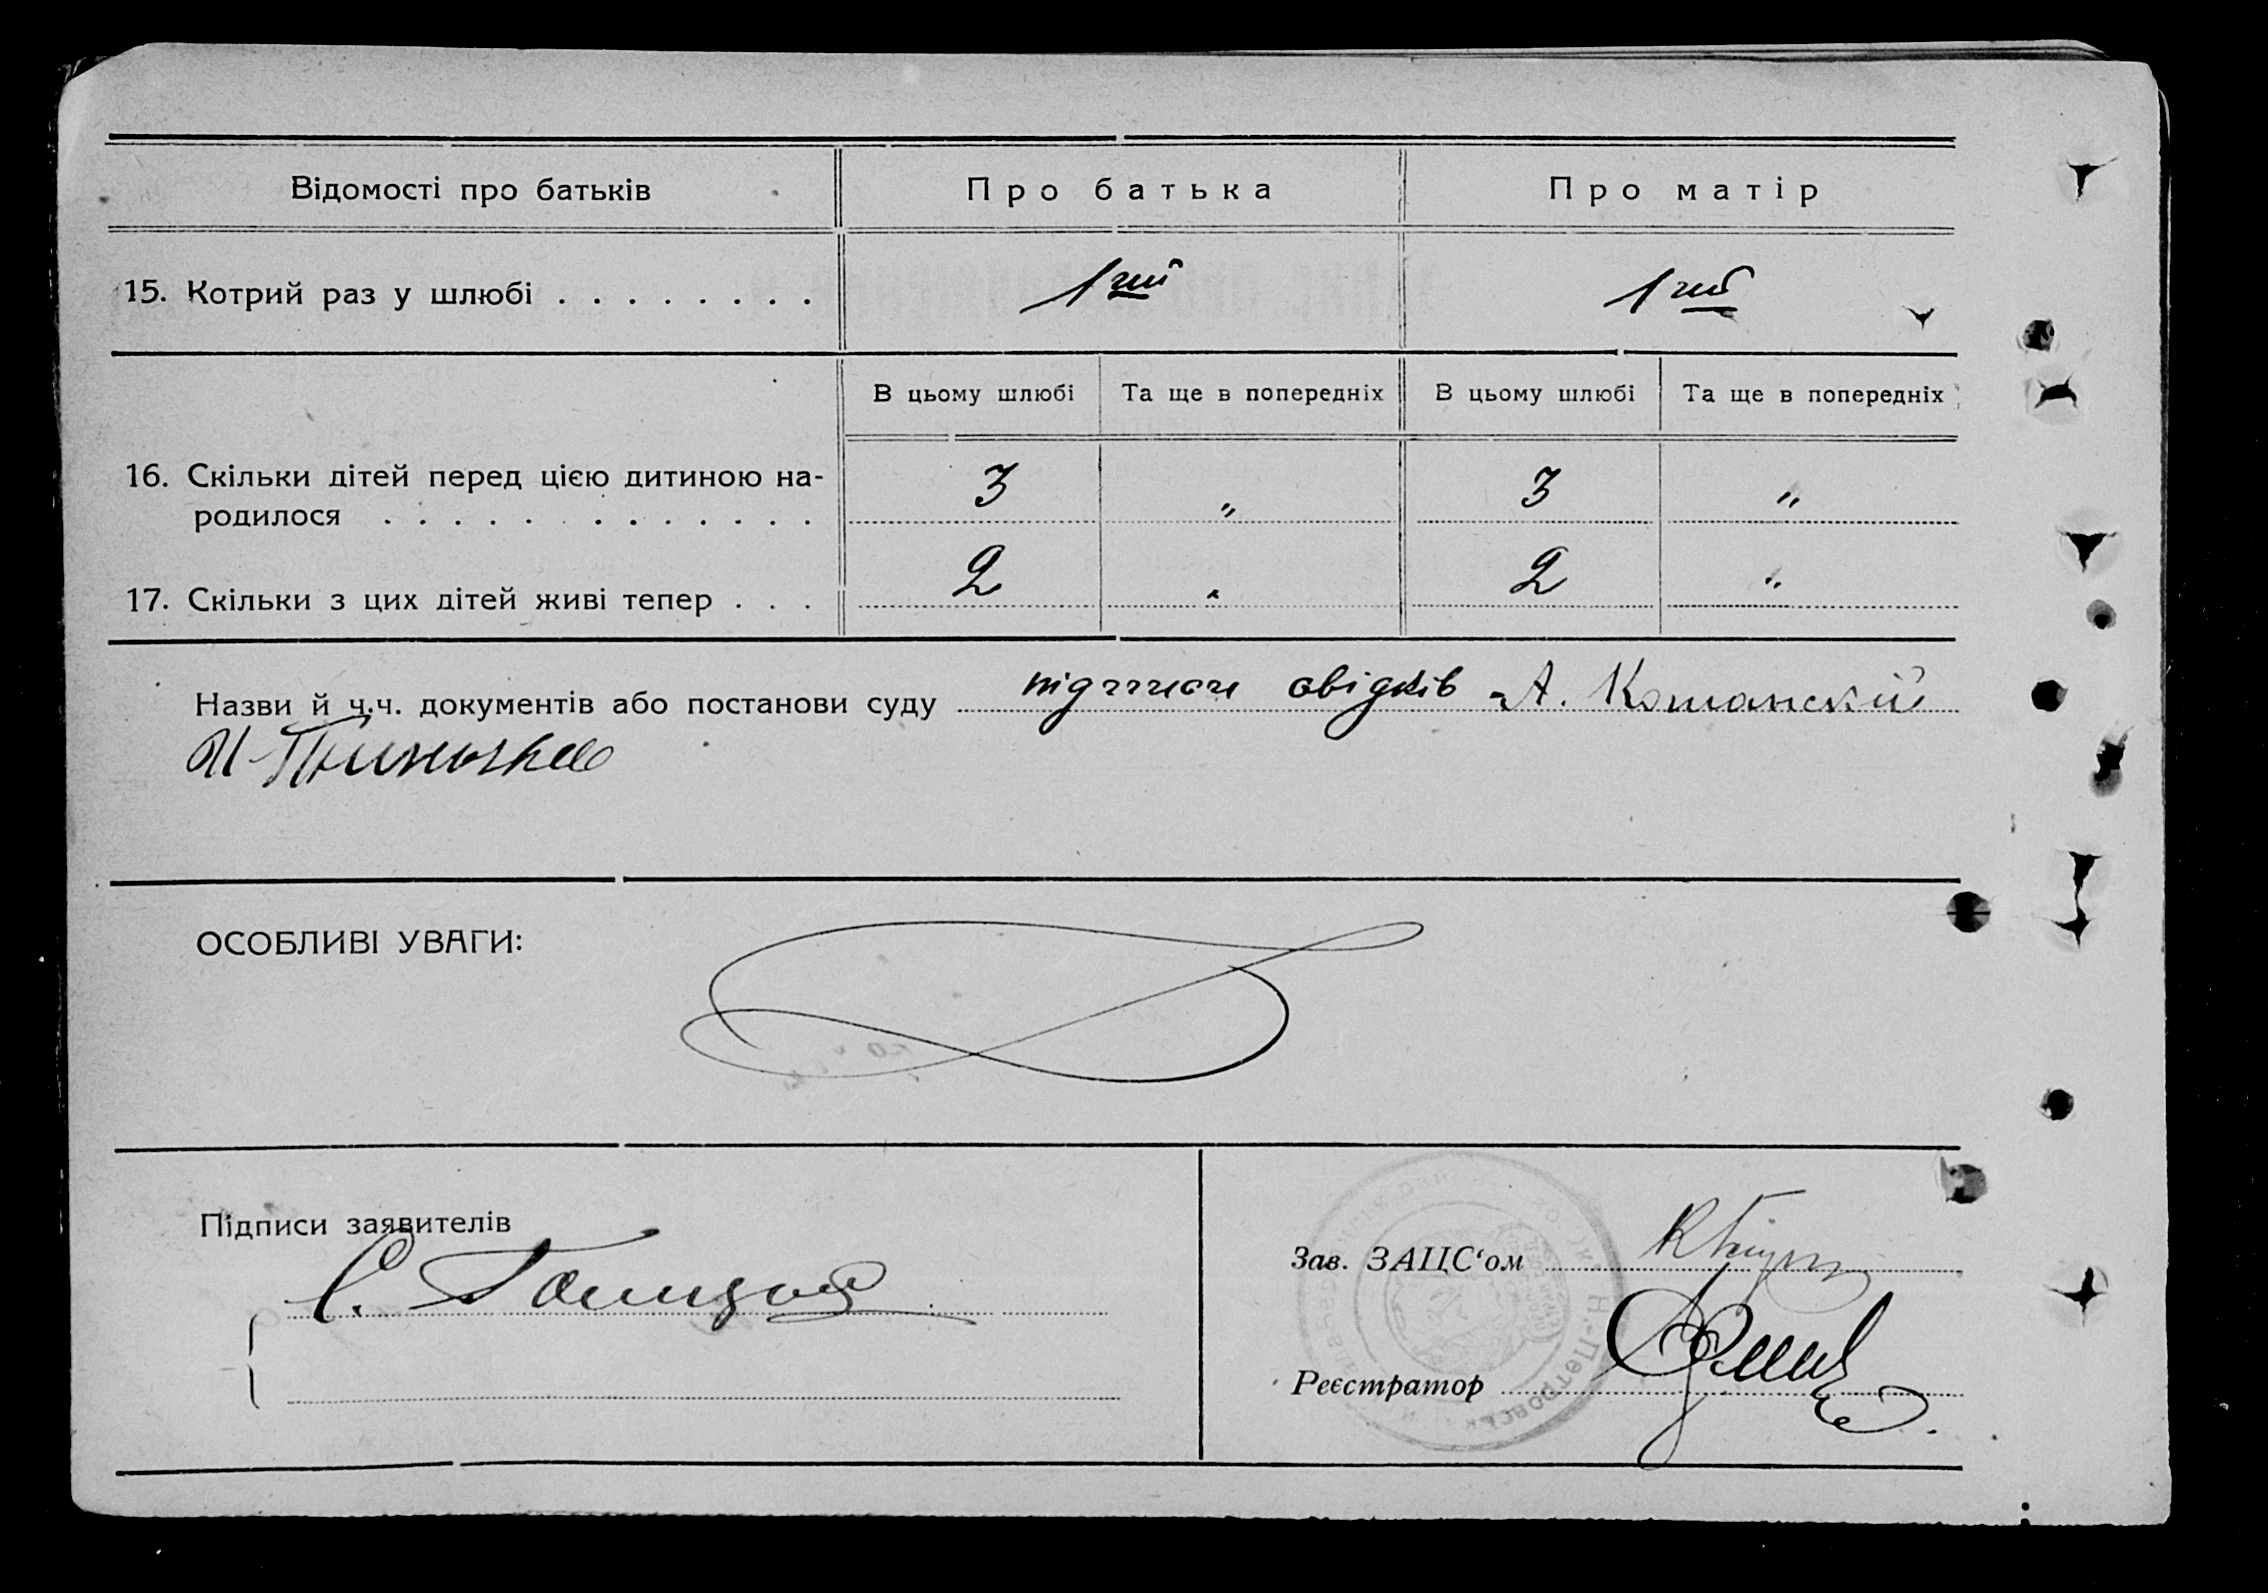 Відомості про батьків
Про батька
Про матір
15. Котрий раз у шлюбі . . . . . . . .
1ий
1ий
В цьому шлюбі
Та ще в попередніх
В цьому шлюбі
Та ще в попередніх
16. Скільки дітей перед цією дитиною на-
родилося . . . . . . . . . . . . .
3
"
3
"
17. Скільки з цих дітей живі тепер . . .
2
"
2
"
Назви й ч.ч. документів або постанови суду підписи свідків - А.
ОСОБЛИВІ УВАГИ:
Підписи заявителів
С.
Зав. ЗАЦС‘ом
Реєстратор
Н.-Петровськ